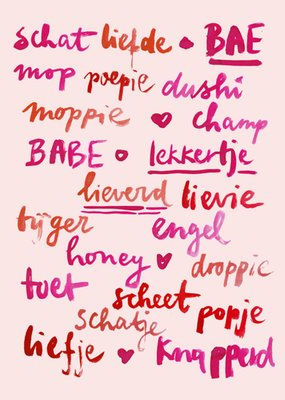 schat liefde BAE
mop poepie dushi
moppie champ
BABE lekkertje
lieverd lievie
tijger engel
honey droppie
toet scheet popje
schatje
liefje knapperd